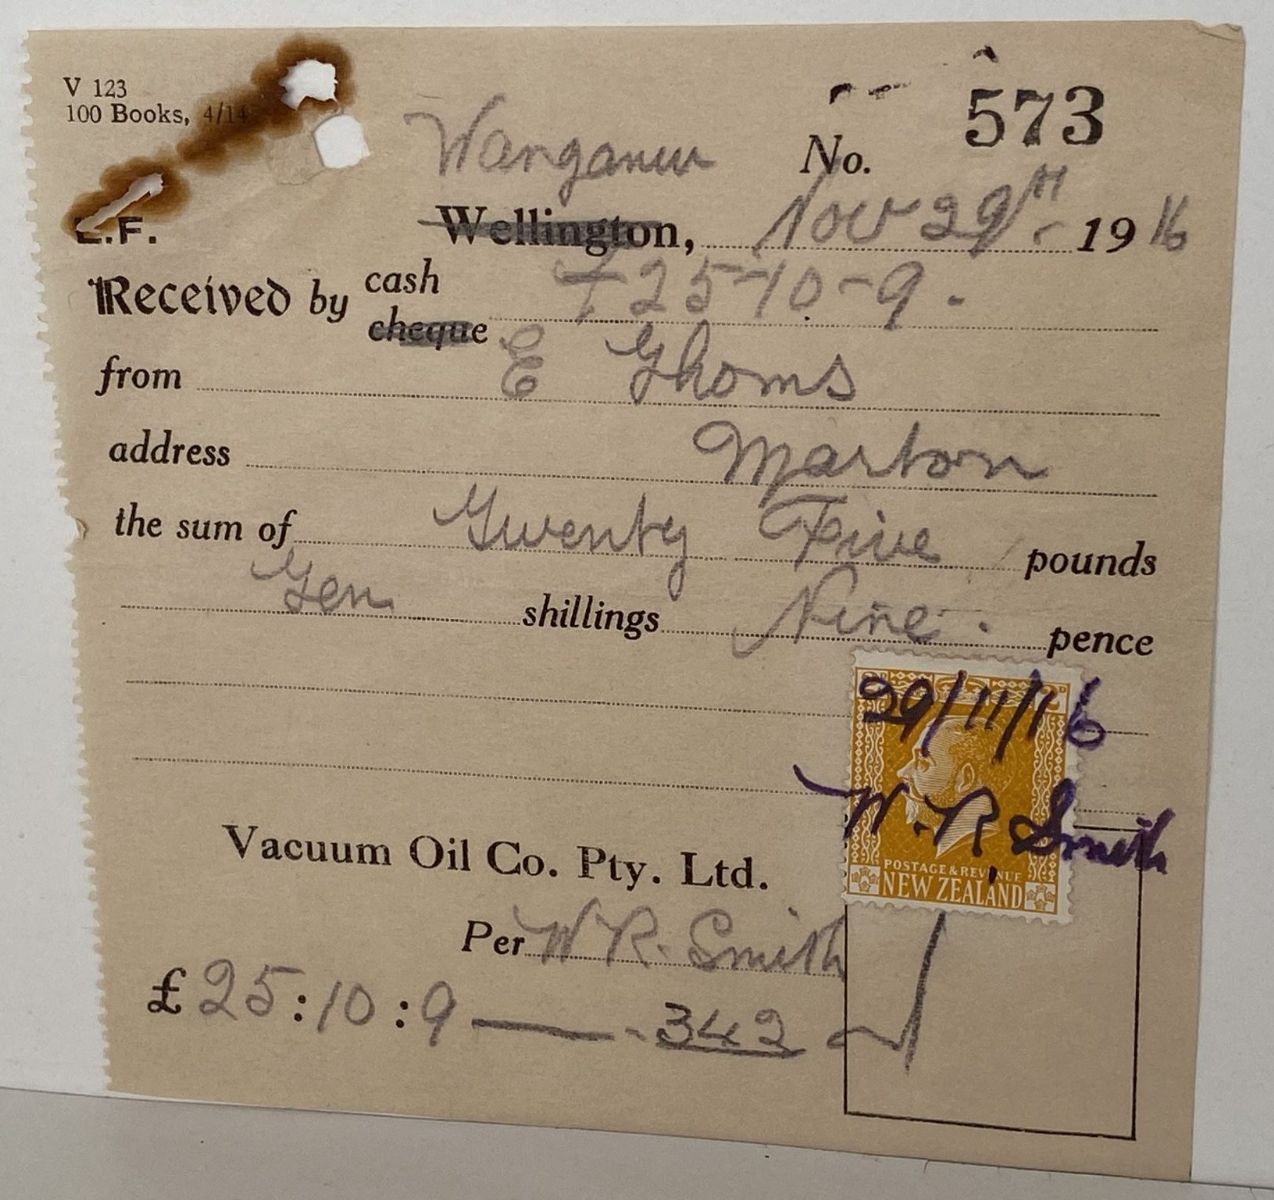 V 123
100 Books, 4/14
No. 573
Wanganui
Wellington, Nov 29th 1916
L.F.
Received by cash £25-10-9.
cheque
from E Thoms
address Marton
the sum of Twenty Five pounds
Ten shillings Nine pence
29/11/16
W. R. Smith
POSTAGE & REVENUE
NEW ZEALAND
Vacuum Oil Co. Pty. Ltd.
Per W R. Smith
£ 25:10:9 — 342